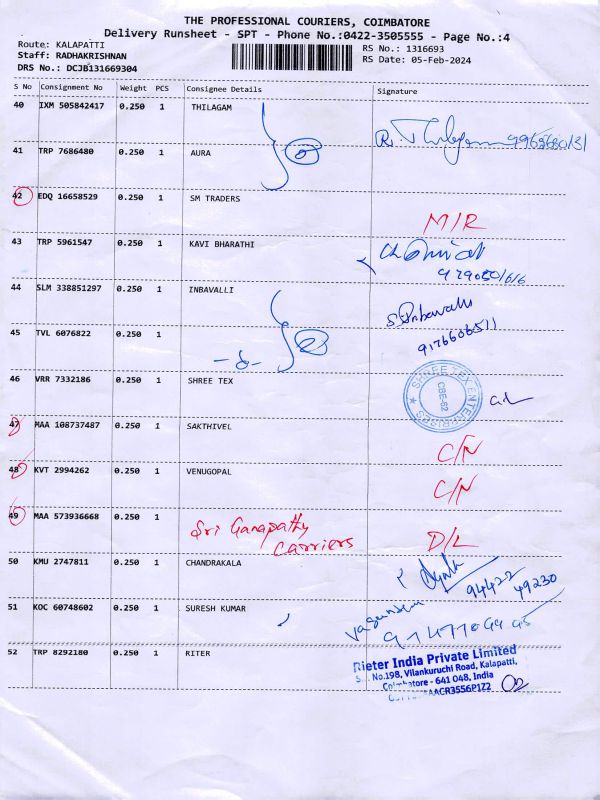 THE PROFESSIONAL COURIERS, COIMBATORE
Delivery Runsheet - SPT - Phone No.:0422-3505555 - Page No.:4
Route: KALAPATTI
RS No.: 1316693
Staff: RADHAKRISHNAN
RS Date: 05-Feb-2024
DRS No.: DCJB131669304
S No Consignment No Weight PCS Consignee Details Signature
40 IXM 505842417 0.250 1 THILAGAM
41 TRP 7686480 0.250 1 AURA
42 EDQ 16658529 0.250 1 SM TRADERS
M/R
43 TRP 5961547 0.250 1 KAVI BHARATHI
44 SLM 338851297 0.250 1 INBAVALLI
S. Inbavalli
9176606511
45 TVL 6076822 0.250 1
-do-
46 VRR 7332186 0.250 1 SHREE TEX
SHREE TEX ENTERPRISES
CBE-62
47 MAA 108737487 0.250 1 SAKTHIVEL
C/N
48 KVT 2994262 0.250 1 VENUGOPAL
C/N
49 MAA 573936668 0.250 1 Sri Ganapathy
Carriers D/L
50 KMU 2747811 0.250 1 CHANDRAKALA
94422 49230
51 KOC 60748602 0.250 1 SURESH KUMAR
52 TRP 8292180 0.250 1 RITER
Rieter India Private Limited
No.198, Vilankuruchi Road, Kalapatti,
Coimbatore - 641 048, India